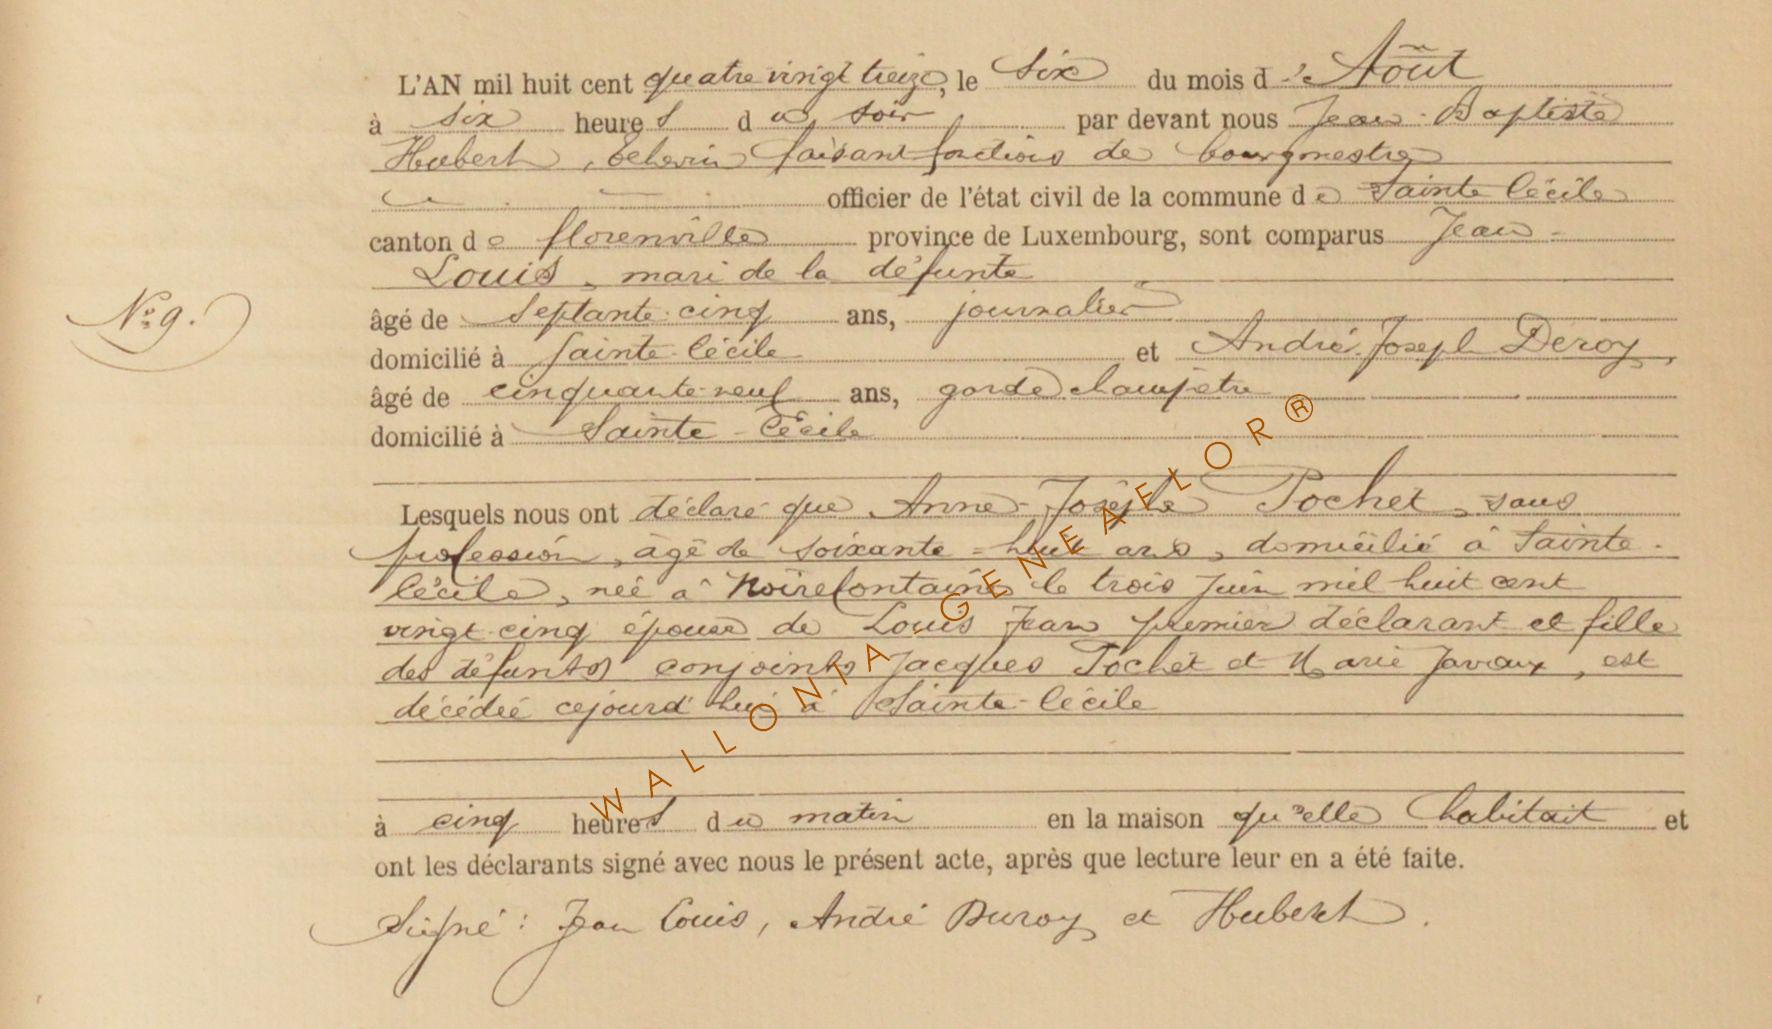 L'AN mil huit cent quatre vingt treize, le six du mois d'Août
à six heures du soir par devant nous Jean-Baptiste
Hubert, échevin faisant fonctions de bourgmestre
officier de l'état civil de la commune de Sainte Cécile
canton de florenville province de Luxembourg, sont comparus Jean-
Louis, mari de la défunte
âgé de septante-cinq ans, journalier
domicilié à Sainte-Cécile et André-Joseph Deroy,
N° 9.
âgé de cinquante-neuf ans, garde champêtre
domicilié à Sainte-Cécile
Lesquels nous ont déclaré que Anne-Josèphe Pochet, sans
profession, âgé de soixante-huit ans, domicilié à Sainte-
Cécile, née à Noirefontaine le trois juin mil huit cent
vingt-cinq épouse de Louis Jean premier déclarant et fille
des défunts conjoints Jacques Pochet et Marie Javaux, est
décédée cejourd'hui à Sainte-Cécile
à cinq heures du matin en la maison qu'elle habitait et
ont les déclarants signé avec nous le présent acte, après que lecture leur en a été faite.
Signé : Jean Louis, André Duroy et Hubert.
WALLONIA GENEAFLOR®